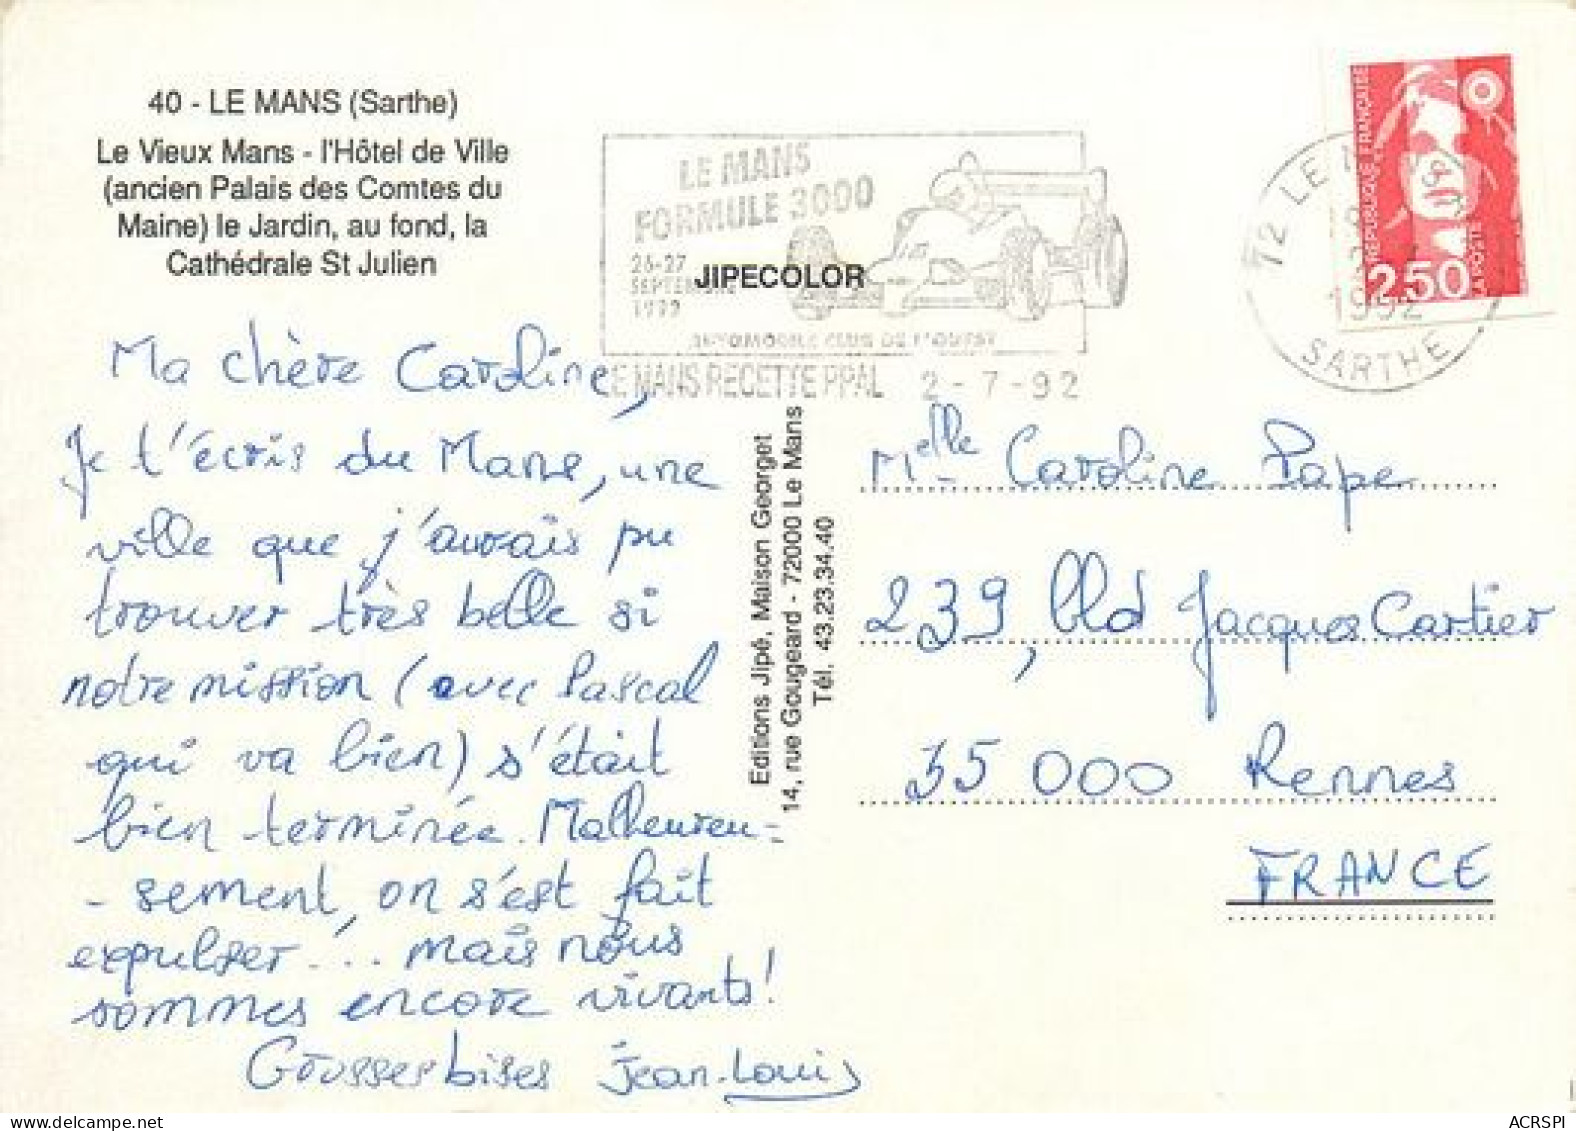 40 - LE MANS (Sarthe)
Le Vieux Mans - l'Hôtel de Ville
(ancien Palais des Comtes du
Maine) le Jardin, au fond, la
Cathédrale St Julien
LE MANS
FORMULE 3000
26-27
SEPTEMBRE
1992
JIPECOLOR
AUTOMOBILE CLUB DE L'OUEST
LE MANS RECETTE PPAL 2-7-92
72 LE
1992
SARTHE
REPUBLIQUE FRANÇAISE
2,50
LA POSTE
Ma chère Caroline,
Je t'écris du Mans, une
ville que j'aurais pu
trouver très belle si
notre mission (avec Pascal
qui va bien) s'était
bien terminée. Malheureu-
-sement, on s'est fait
expulser... mais nous
sommes encore vivants!
Grosses bises Jean-Louis
Editions Jipé, Maison Georget
14, rue Gougeard - 72000 Le Mans
Tél. 43.23.34.40
Melle Caroline Pape
239, bld Jacques Cartier
35 000 Rennes
FRANCE
ACRSPI